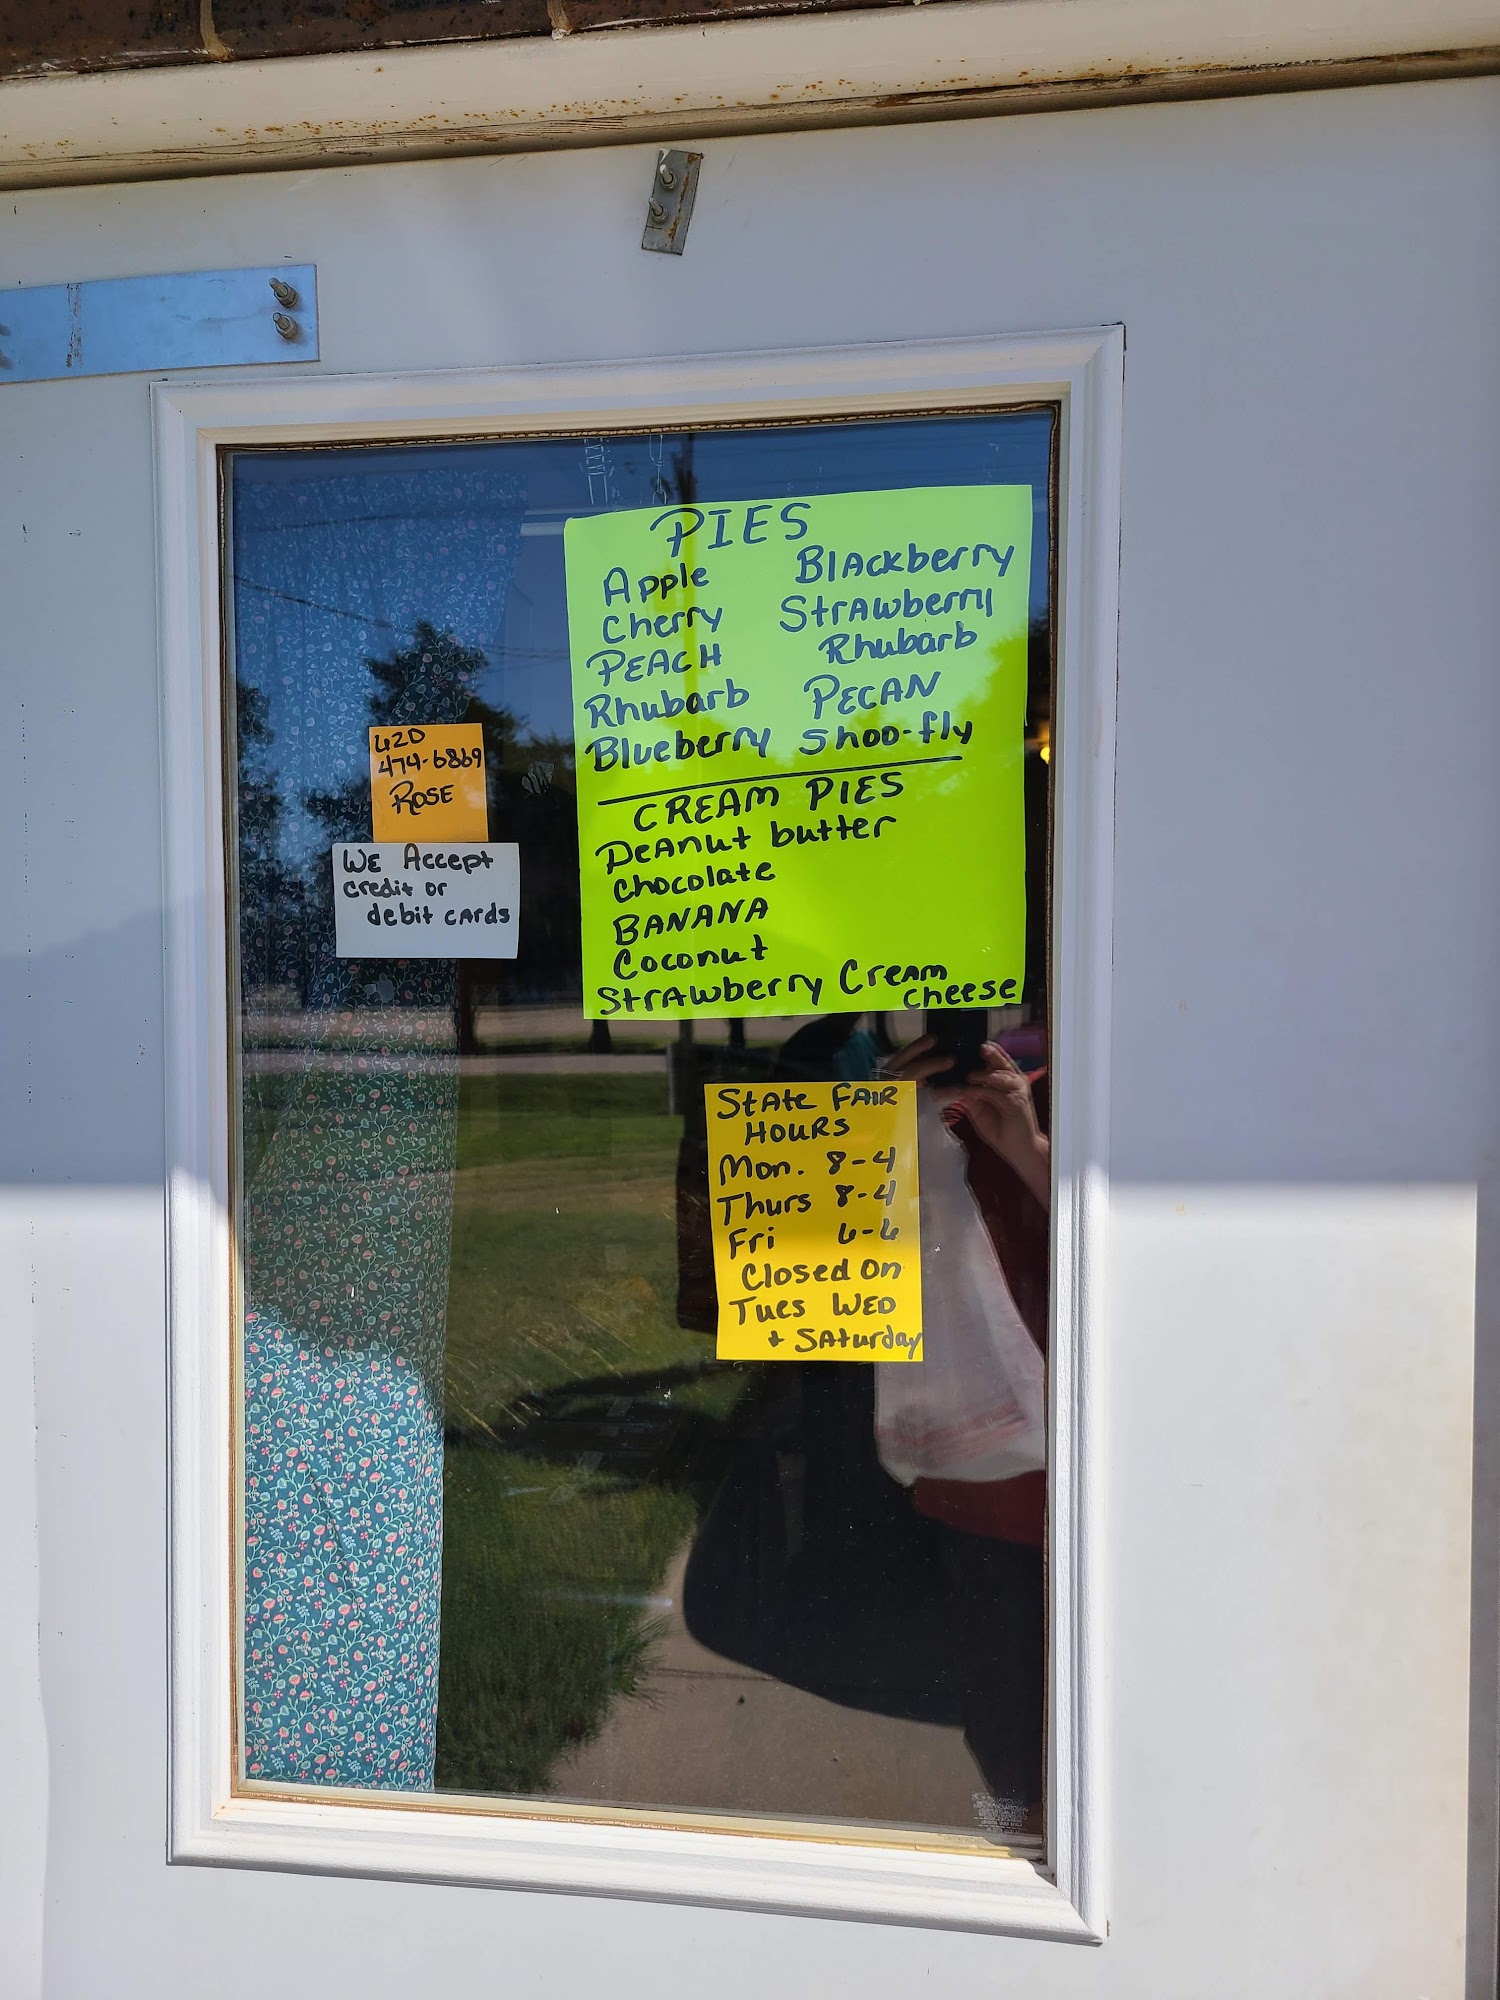 PIES
Apple
Cherry
PEACH
Rhubarb
Blueberry
Blackberry
Strawberry
Rhubarb
PECAN
Shoo-fly
CREAM PIES
Peanut butter
Chocolate
BANANA
Coconut
Strawberry Cream
cheese
620
474-6869
ROSE
WE Accept
credit or
debit cards
State FAIR
HOURS
Mon. 8-4
Thurs 8-4
Fri 6-6
Closed On
Tues WED
+ Saturday